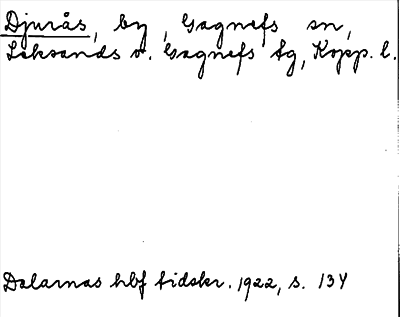 Djurås, by, Gagnefs sn,
Leksands o. Gagnefs tg, Kopp. l.
Dalarnas hbf tidskr. 1922, s. 134